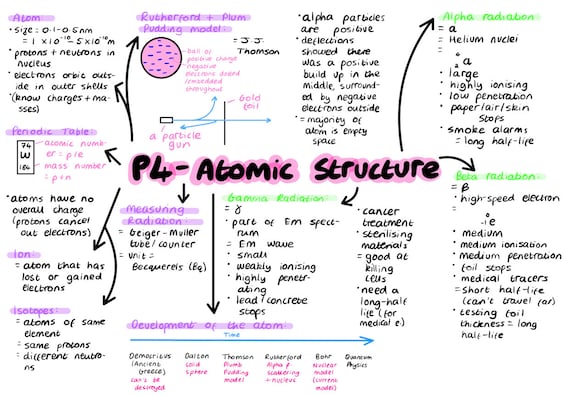 Atom
• size = 0.1-0.5nm
= 1 × 10⁻¹⁰ - 5×10⁻¹⁰m
• protons + neutrons in
nucleus
• electrons orbit outs-
ide in outer shells
• (know charges + ma-
sses)
Periodic Table
74
W
184
= atomic numb-
er = p/e
• mass number
= p+n
• atoms have no
overall charge
(protons cancel
out electrons)
Ion:
= atom that has
lost or gained
electrons
Isotopes:
= atoms of same
element
= same protons
= different neutro-
ns
Rutherford + Plum
Pudding model:
= J.J.
Thomson
= ball of
positive charge
= negative
electrons dotted/
embedded
throughout
Gold
foil
a particle
gun
• alpha particles
are positive
• deflections
showed there
was a positive
build up in the
middle, surround-
ed by negative
electrons outside
= majority of
atom is empty
space
P4-Atomic Structure
Measuring
Radiation:
= Geiger-Muller
tube/counter
= unit =
Becquerels (Bq)
Gamma Radiation:
= γ
• part of Em spect-
rum
= Em wave
= small
• weakly ionising
• highly penetr-
ating
• lead/concrete
stops
• cancer
treatment
• sterilising
materials
= good at
killing
cells
• need a
long-half
life (for
medical e)
Alpha radiation
= α
= Helium nuclei
α
• large
• highly ionising
• low penetration
• paper/air/skin
stops
• smoke alarms
= long half-life
Beta radiation:
= β
• high-speed electron
=
e
• medium
• medium ionisation
• medium penetration
• foil stops
• medical tracers
= short half-life
(can't travel far)
• testing foil
thickness = long
half-life
Development of the atom:
Time
Democritus
(Ancient
Greece)
can't be
destroyed
Dalton
Solid
Sphere
Thomson
Plumb
Pudding
model
Rutherford
Alpha p.
scattering
+ nucleus
Bohr
Nuclear
model
(current
model)
Quantum
Physics